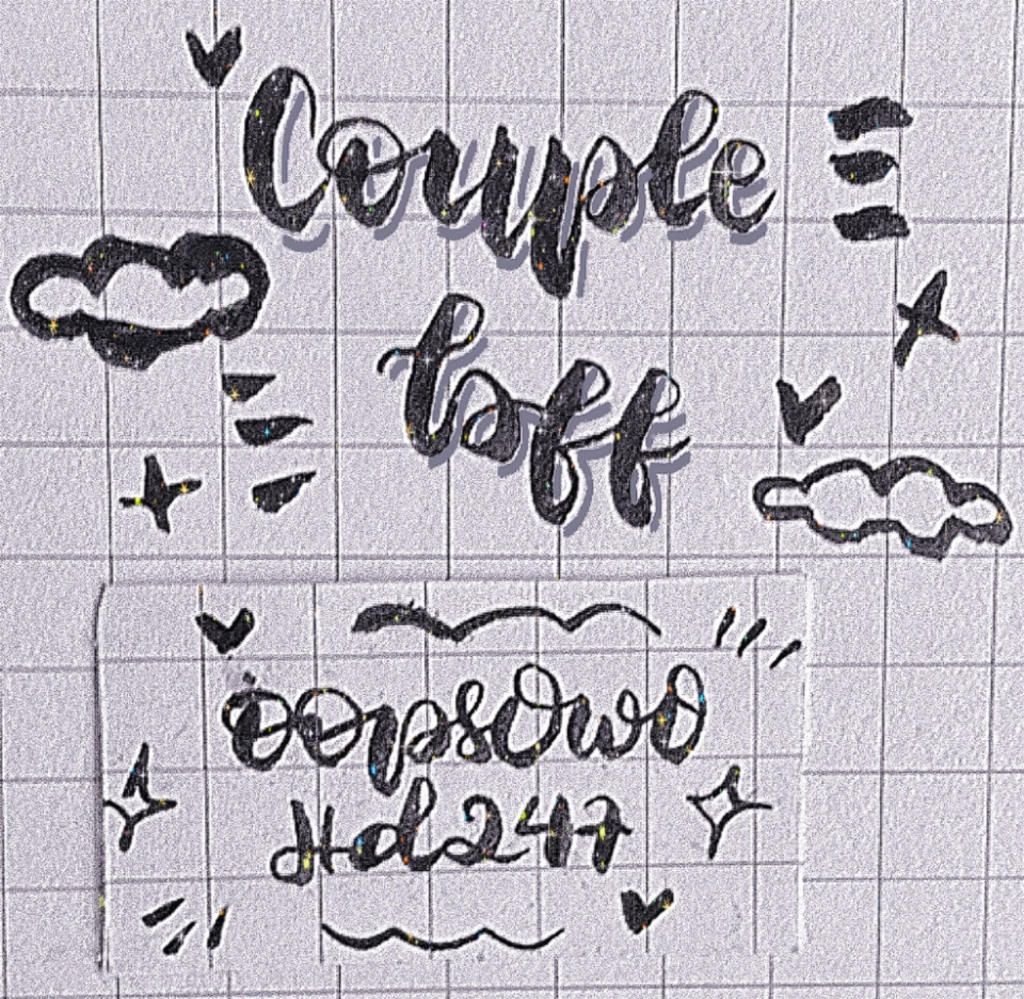 Couple
toff
oopsOwO
Hd247